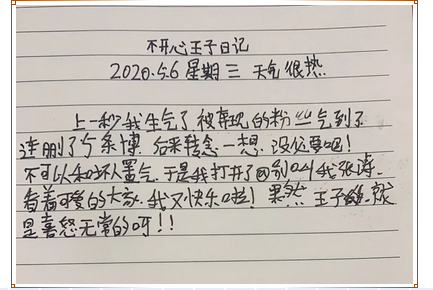 不开心王子日记
2020.5.6 星期三 天气很热
上一秒我生气了 被我的粉丝气到了
连删了5条博 后来转念一想 没必要吧！
不可以和坏人置气 于是我打开了@别叫我张涛
看着可爱的大家 我又快乐啦！果然 王子就
是喜怒无常的呀！！